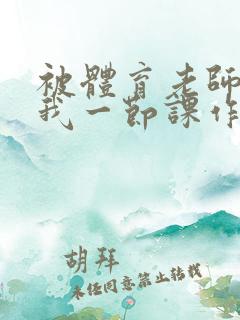 被體育老師
我一節課作
胡拜
未经同意禁止转载